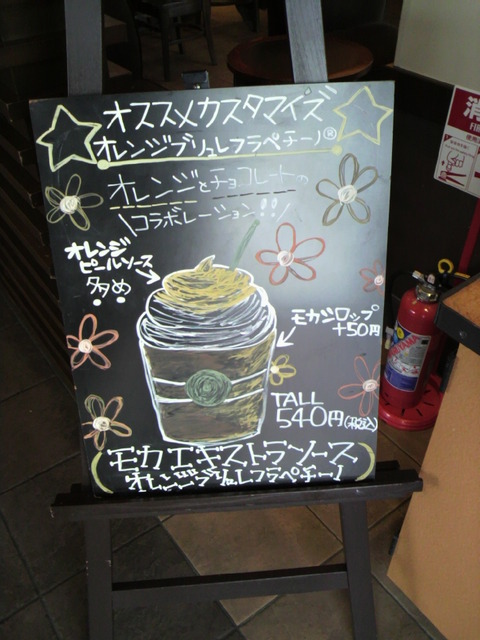 オススメカスタマイズ
オレンジブリュレフラペチーノ®
オレンジとチョコレートの
\コラボレーション!!/
オレンジ
ピールソース
多め
モカシロップ
+50円
TALL
540円(税込)
モカエキストラソース
オレンジブリュレフラペチーノ
消
FIR